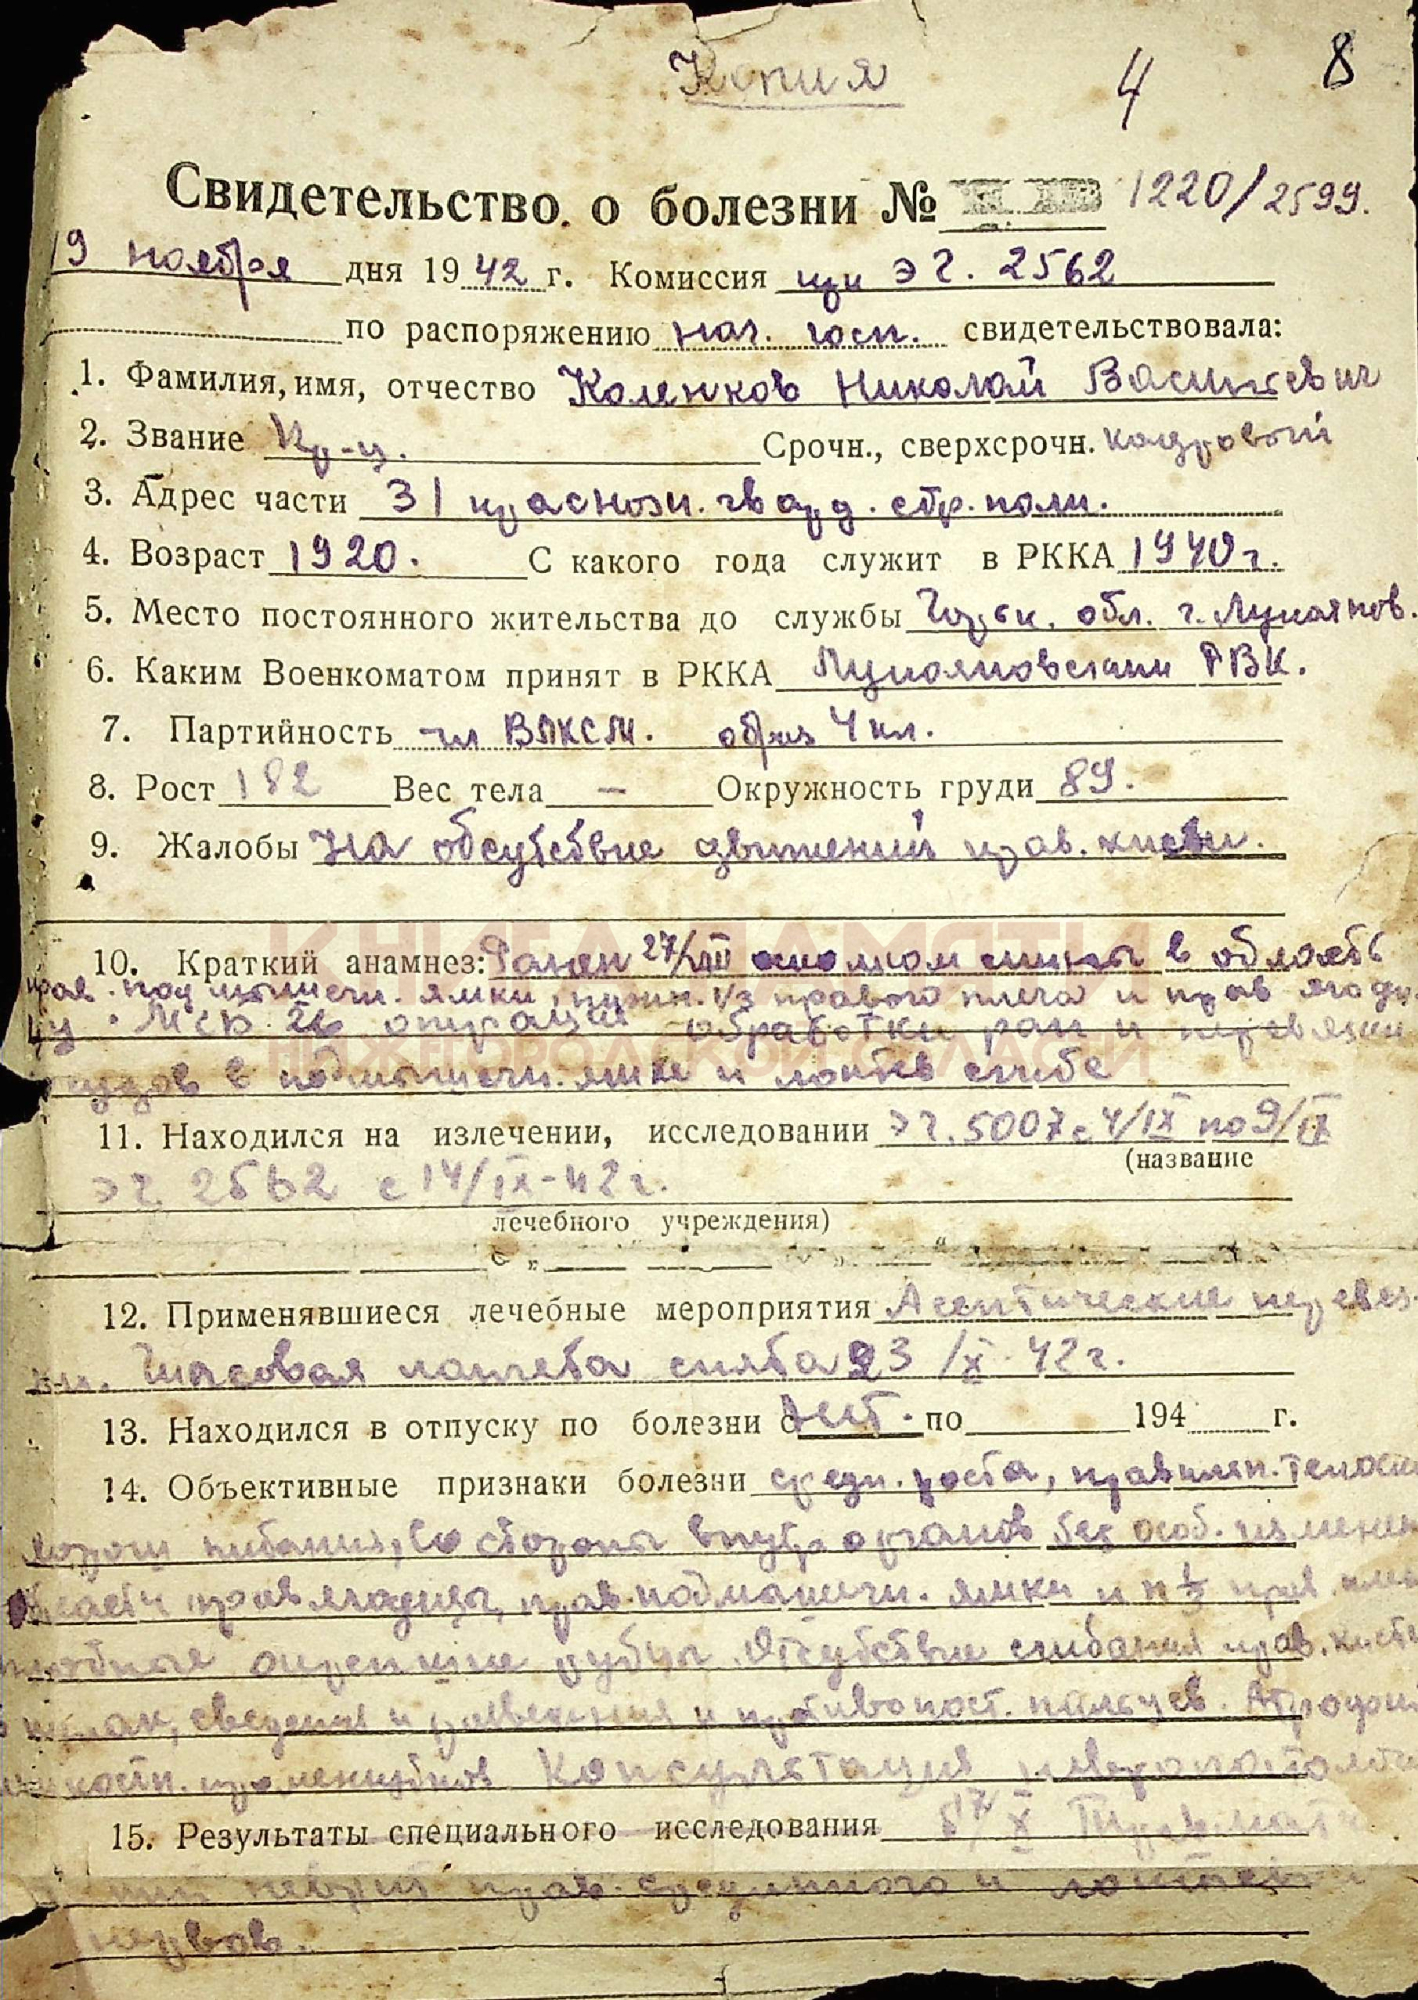 Копия
4
8
Свидетельство о болезни № 1220/2599.
19 ноября дня 1942 г. Комиссия при ЭГ. 2562
по распоряжению нач. госп. свидетельствовала:
1. Фамилия, имя, отчество Каленков Николай Васильевич
2. Звание Кр-ц. Срочн., сверхсрочн. кадровый
3. Адрес части 31 краснозн. гвард. стр. полк.
4. Возраст 1920. С какого года служит в РККА 1940 г.
5. Место постоянного жительства до службы Горьк. обл. г. Лукоянов.
6. Каким Военкоматом принят в РККА Лукояновским РВК.
7. Партийность чл ВЛКСМ. образ 4 кл.
8. Рост 182 Вес тела — Окружность груди 89.
9. Жалобы На обсутствие движений прав. кисти.
КНИГА ПАМЯТИ
10. Краткий анамнез: Ранен 27/VIII осколком мины в область
прав. подмышечн. ямки, нижн. 1/3 правого плеча и прав ягоди
цу. МСБ 26 операция обработки ран и перевязки
НИЖЕГОРОДСКОЙ ОБЛАСТИ
сосудов в подмышечн. ямке и локтев сгибе
11. Находился на излечении, исследовании ЭГ. 5007 с 4/IX по 9/IX
(название
ЭГ 2562 с 14/IX-42 г.
лечебного учреждения)
с „ “ „ “
12. Применявшиеся лечебные мероприятия Асептические перевяз-
ки. Гипсовая лонгета снята 23/X 42 г.
13. Находился в отпуску по болезни с Нет. по 194 г.
14. Объективные признаки болезни средн. роста, правильн. телосл
хорош питания, Со стороны внутр органов без особ. изменен
области прав ягодицы, прав подмышечн. ямки и н 1/3 прав. пле
окрепшие рубцы. Отсутствие сгибания прав. кисти
в кулак, сведения и разведения и противопост. пальцев. Атрофия
межкостн. промежутков. Консультация невропатолога
15. Результаты специального исследования 17/X Травмати
ческий неврит прав. срединного и локтевого
нервов.